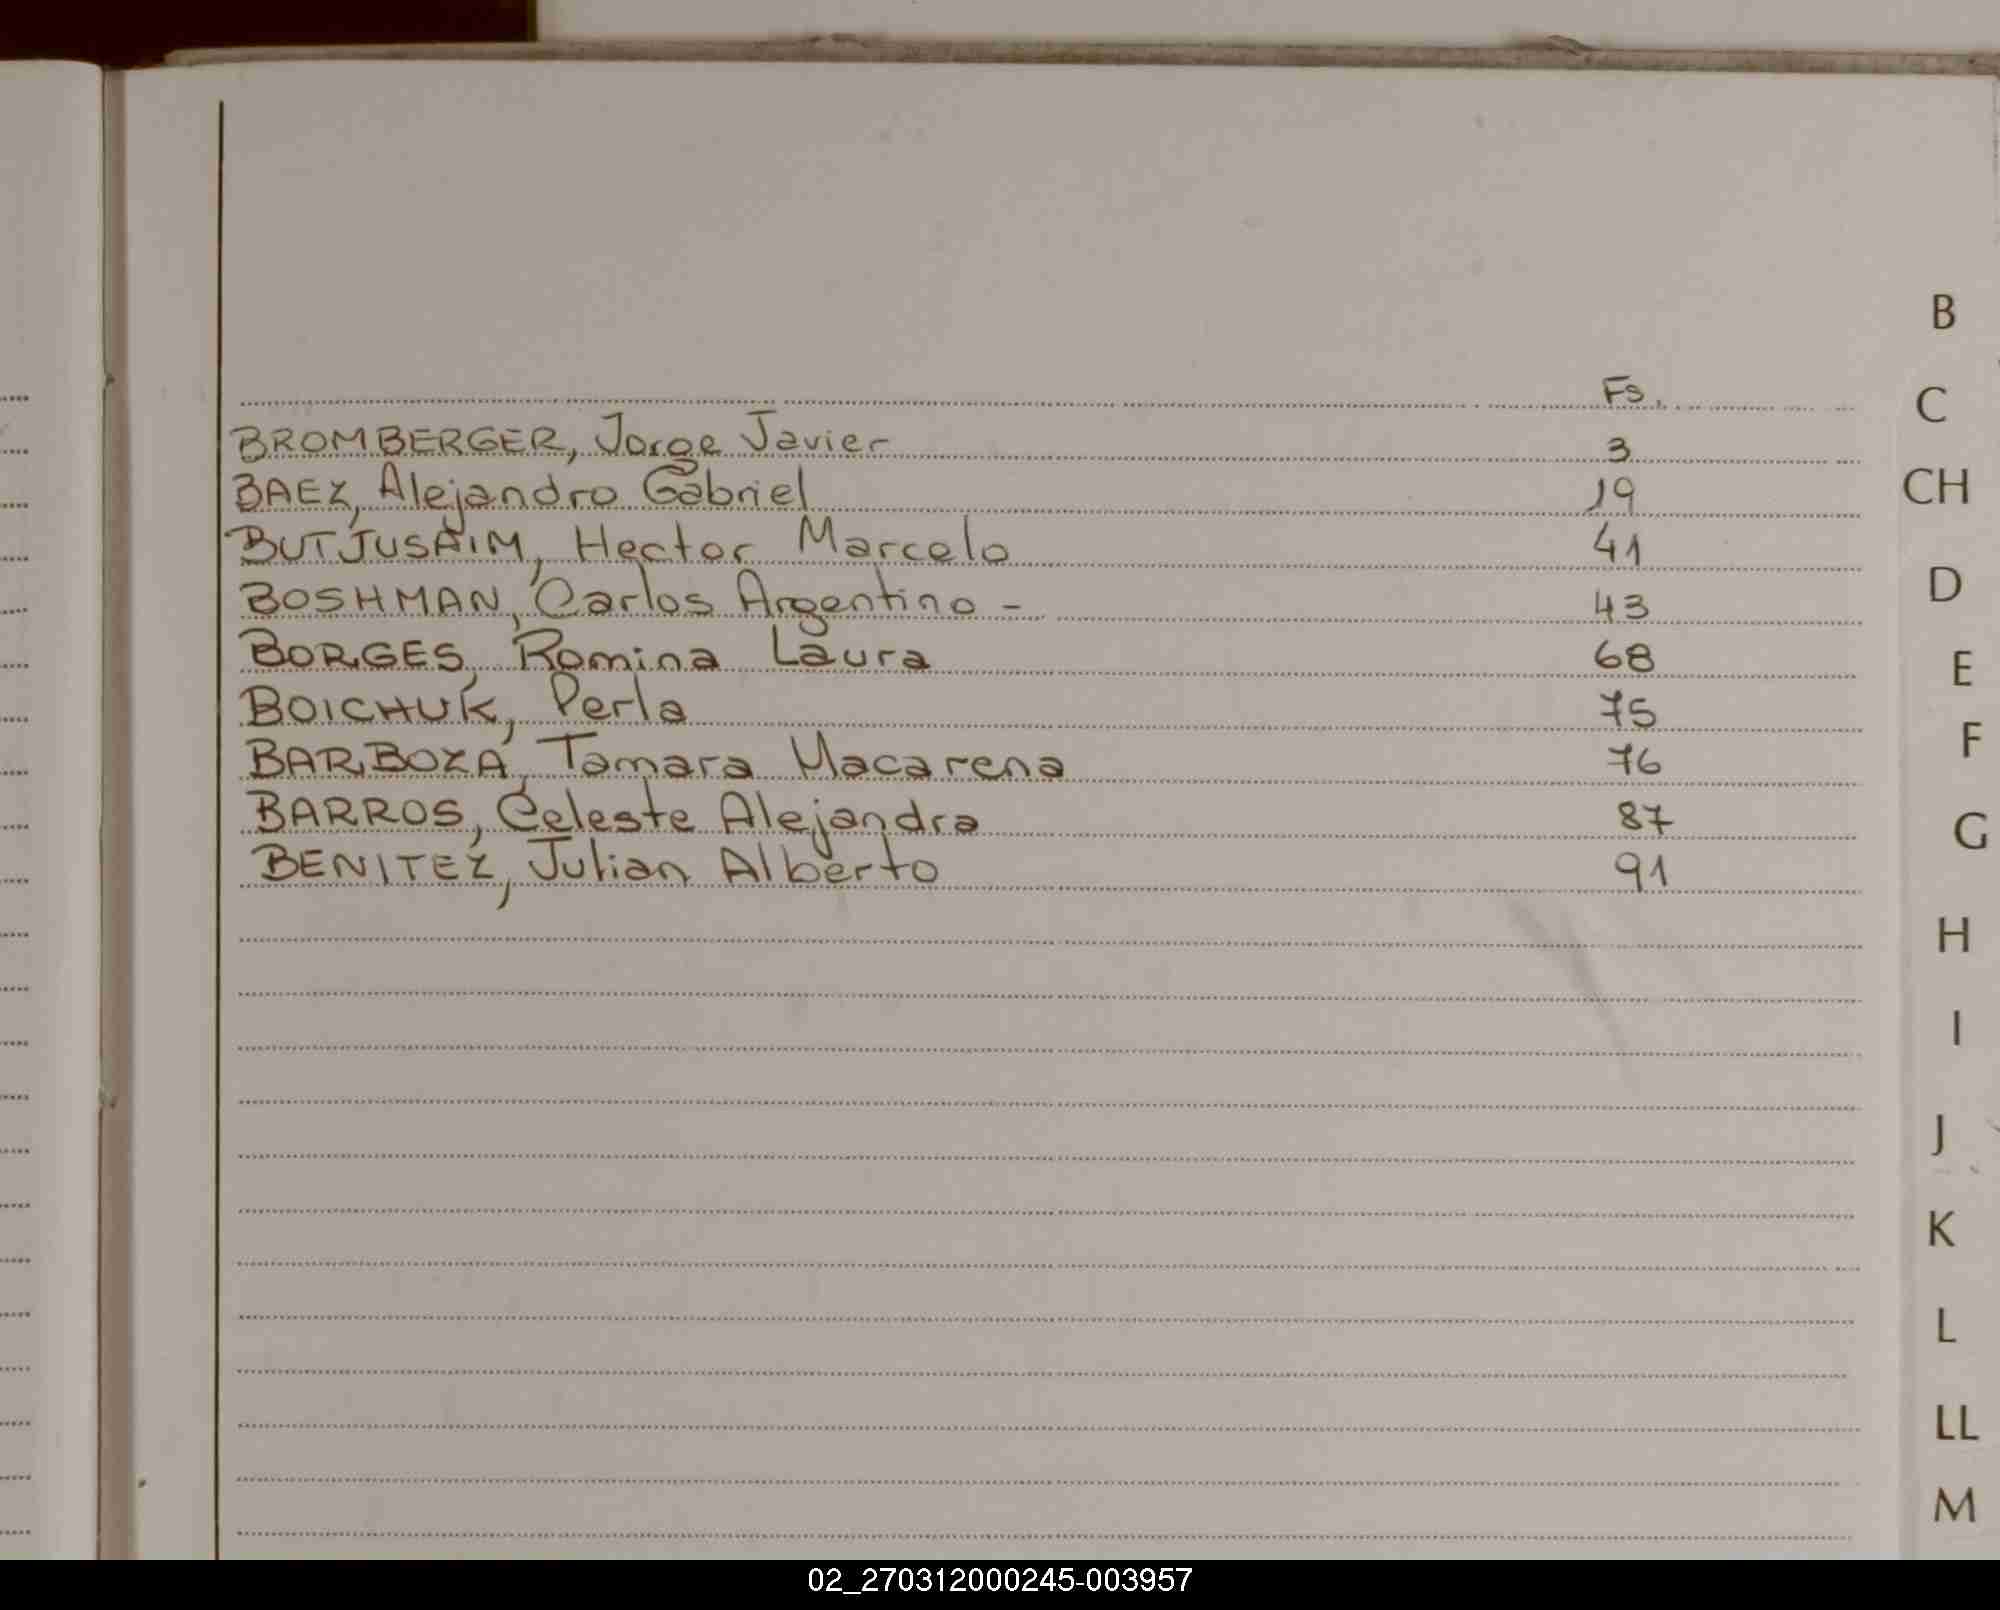 Fs.
BROMBERGER, Jorge Javier 3
BAEZ, Alejandro Gabriel 19
BUTJUSAIM, Hector Marcelo 41
BOSHMAN, Carlos Argentino - 43
BORGES, Romina Laura 68
BOICHUK, Perla 75
BARBOZA, Tamara Macarena 76
BARROS, Celeste Alejandra 87
BENITEZ, Julian Alberto 91
B
C
CH
D
E
F
G
H
I
J
K
L
LL
M
02_270312000245-003957